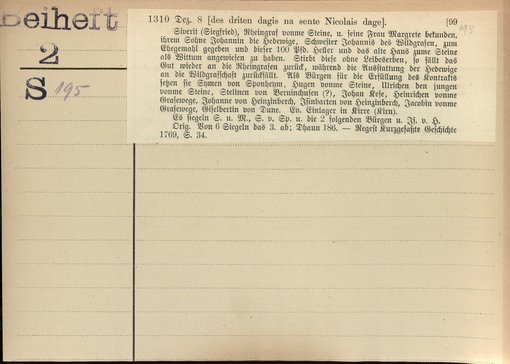 Beiheft
2
S 195
1310 Dez. 8 [des driten dagis na sente Nicolais dage]. [99
195
Siverit (Siegfried), Rheingraf vonme Steine, u. seine Frau Margrete bekunden,
ihrem Sohne Johannin die Hedewige, Schwester Johannis des Wildgrafen, zum
Ehegemahl gegeben und dieser 100 Pfd. Heller und das alte Haus zume Steine
als Wittum angewiesen zu haben. Stirbt diese ohne Leibeserben, so fällt das
Gut wieder an die Rheingrafen zurück, während die Ausstattung der Hedewige
an die Wildgrafschaft zurückfällt. Als Bürgen für die Erfüllung des Kontrakts
setzen sie Symen von Sponheym, Hugen vonme Steine, Ulrichen den jungen
vonme Steine, Stelinen von Berninchusen (?), Johan Kese, Heinrichen vonme
Grasewege, Johanne von Heinzinberch, Isinbarten von Heinzinberch, Jacobin vonme
Grasewege, Giselbertin von Dune. Ev. Einlager in Kirre (Kirn).
Es siegeln S. u. M., S. v. Sp. u. die 2 folgenden Bürgen u. Is. v. H.
Orig. Von 6 Siegeln das 3. ab; Dhaun 186. — Regest Kurzgefaßte Geschichte
1769, S. 34.